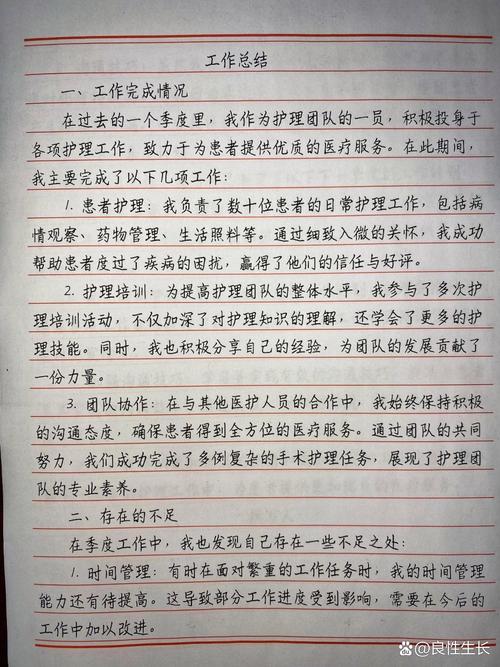 工作总结
一、工作完成情况
在过去的一个季度里，我作为护理团队的一员，积极投身于
各项护理工作，致力于为患者提供优质的医疗服务。在此期间，
我主要完成了以下几项工作：
1. 患者护理：我负责了数十位患者的日常护理工作，包括病
情观察、药物管理、生活照料等。通过细致入微的关怀，我成功
帮助患者度过了疾病的困扰，赢得了他们的信任与好评。
2. 护理培训：为提高护理团队的整体水平，我参与了多次护
理培训活动，不仅加深了对护理知识的理解，还学会了更多的护
理技能。同时，我也积极分享自己的经验，为团队的发展贡献了
一份力量。
3. 团队协作：在与其他医护人员的合作中，我始终保持积极
的沟通态度，确保患者得到全方位的医疗服务。通过团队的共同
努力，我们成功完成了多例复杂的手术护理任务，展现了护理团
队的专业素养。
二、存在的不足
在季度工作中，我也发现自己存在一些不足之处：
1. 时间管理：有时在面对繁重的工作任务时，我的时间管理
能力还有待提高。这导致部分工作进度受到影响，需要在今后的
工作中加以改进。
@良性生长